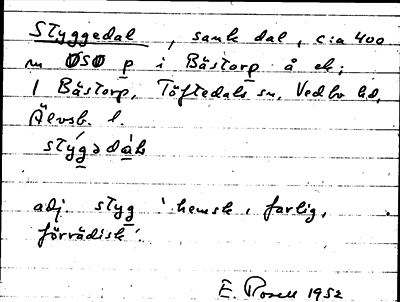 Styggedal, sank dal, c:a 400
m ØSØ p i Bästorp å ek;
1 Bästorp, Töftedals sn, Vedbo hd,
Älvsb. l.
stýgədàḷ
adj. styg 'hemsk, farlig,
förrädisk'.
E. Rosell 1952